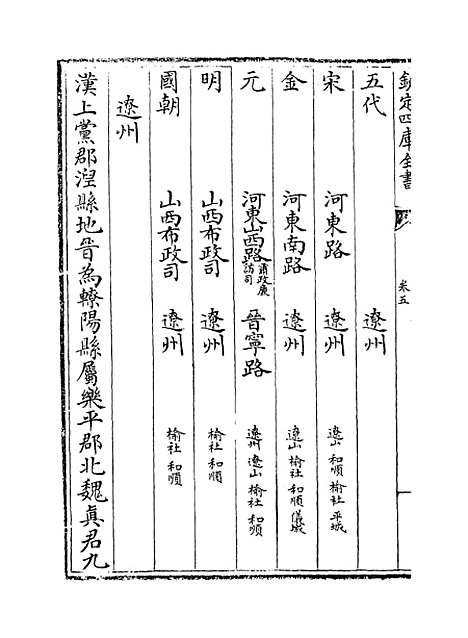 欽定四庫全書 卷五
五代 遼州
宋 河東路 遼州 遼山 和順 榆社 平城
金 河東南路 遼州 遼山 榆社 和順 儀城
元 河東山西路肅政廉訪司 晉寧路 遼州 遼山 榆社 和順
明 山西布政司 遼州 榆社 和順
國朝 山西布政司 遼州 榆社 和順
遼州
漢上黨郡湼縣地晉為轑陽縣屬樂平郡北魏真君九